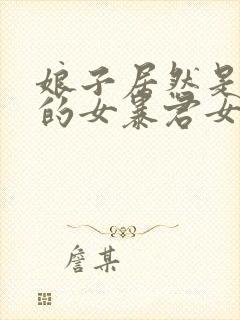 娘子居然是
的女暴君女
詹某